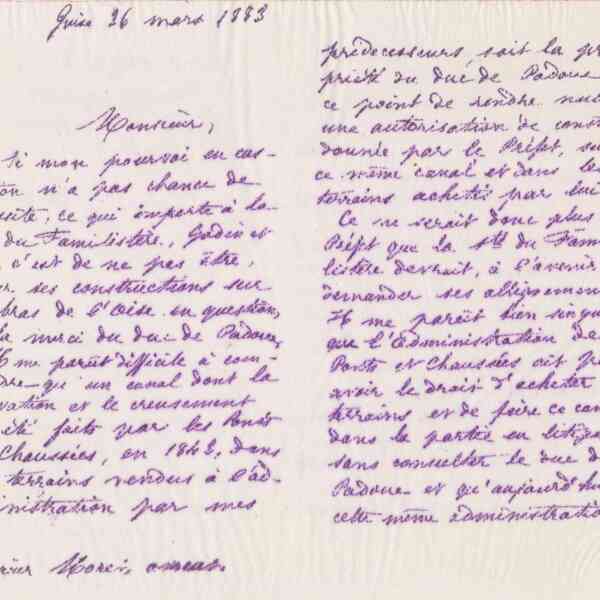 Guise 26 mars 1883
Monsieur,
Si mon pourvoi en cas-
on n'a pas chance de
ussite, ce qui importe à la
du Familistère, Godin et
, c'est de ne pas être,
r ses constructions sur
bras de l'Oise en question,
la merci du duc de Padoue.
Il me paraît difficile à com-
dre qu'un canal dont la
vation et le creusement
été faits par les Ponts
Chaussées, en 1843, dans
terrains vendus à l'ad-
inistration par mes
prédécesseurs, soit la pro
priété du duc de Padoue
ce point de rendre nul
une autorisation de const
donnée par le Préfet, su
ce même canal et dans les
terrains achetés par lui
Ce ne serait donc plus
Préfet que la Sté du Fami
listère devrait, à l'avenir
demander ses alignement
Il me paraît bien singu
que l'Administration de
Ponts et Chaussées ait p
avoir le droit d'acheter
terrains et de faire ce can
dans la partie en litige
sans consulter le duc d
Padoue et qu'aujourd'hui
cette même administratio